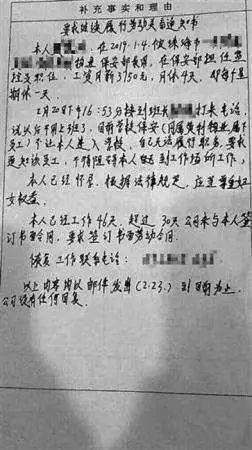 补充事实和理由
要求继续履行劳动关系通知书
本人 在2019.1.4.使珠海市
招进 保安部长隶,在保安部担任监
控员职位,工资月薪3750元,月休4天,即每个星
期休一天。
2月20日下午16:53分接到班长 打来电话,
说以后不用上班了,目前学校保安(同属 物业属下
员工)不让本人进入学校,自己无法履行职务,要求
通知该员工,不得阻碍本人回到工作场所工作。
本人已经怀孕,依据法律规定,应该尊重妇
女权益。
本人已经工作46天,超过30天公司未与本人签
订书面合同,要求签订书面劳动合同。
恢复工作联系电话:
以上内容均以邮件发出(2.23.)到目前为止,
公司没有任何回复。